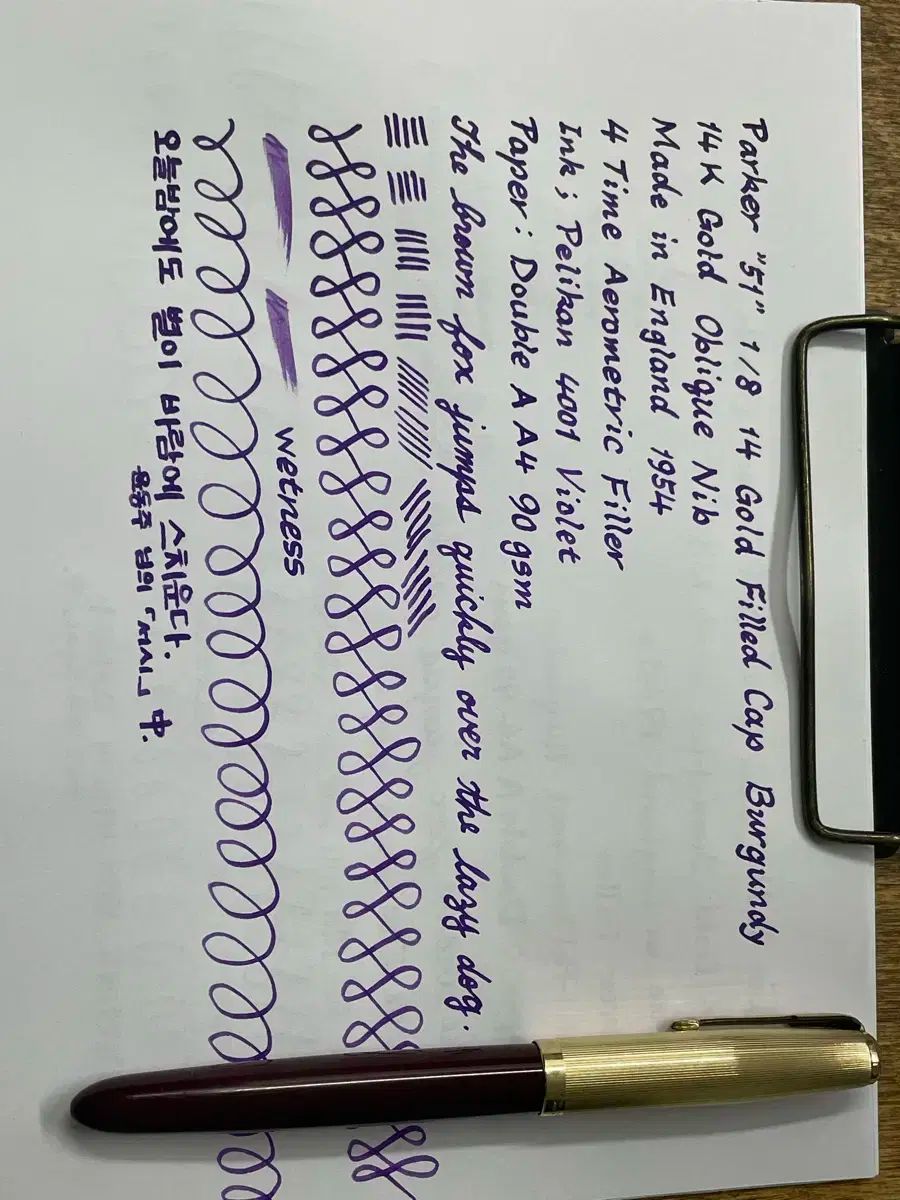 Parker "51" 1/8 14 Gold Filled Cap Burgundy
14K Gold Oblique Nib
Made in England 1954
4 Time Aerometric Filler
Ink ; Pelikan 4001 Violet
Paper : Double A A4 90 gsm
The brown fox jumps quickly over the lazy dog.
wetness
오늘밤에도 별이 바람에 스치운다.
윤동주 님의 「서시」 中.